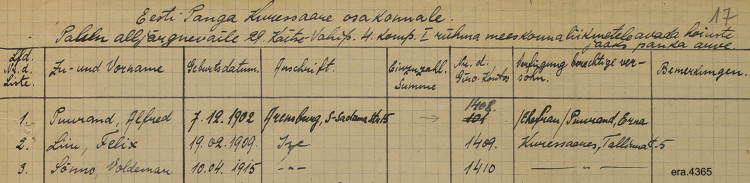 Eesti Panga Kuressaare osakonnale. 17
Palun alljärgnevaile 29. Kaitse-Vahip. 4. komp. I rühma meeskonna liikmetele avada hoiuste
jaoks panka arve.
Lfd. Nr. d. Liste. Zu- und Vorname Geburtsdatum. Anschrift. Einzuzahl. Summe Nr. d. Giro-Kontos Verfügung berechtige Person. Bemerkungen.
1. Puurand, Alfred 7.12.1902 Arensburg, S-Sadama Nr 15 → 1408. /Ehefrau/ Puurand, Erna
2. Liiv, Felix 19.02.1909. 1409. Kuressaares, Tallinna t. 5
3. Voldemar 10.04.1915 -"- 1410 -"-
era.4365